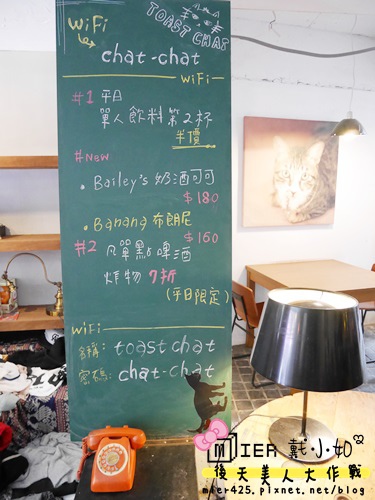 WiFi
吐司
查.查
TOAST CHAT
chat-chat
WiFi
#1 平日
單人飲料第2杯
半價
#New
• Bailey's 奶酒可可
$180
• Banana 布朗尼
$160
#2 凡單點啤酒
炸物 7折
(平日限定)
WiFi
名稱: toast chat
密碼: chat-chat
MIER 戴小如
後天美人大作戰
mier425.pixnet.net/blog